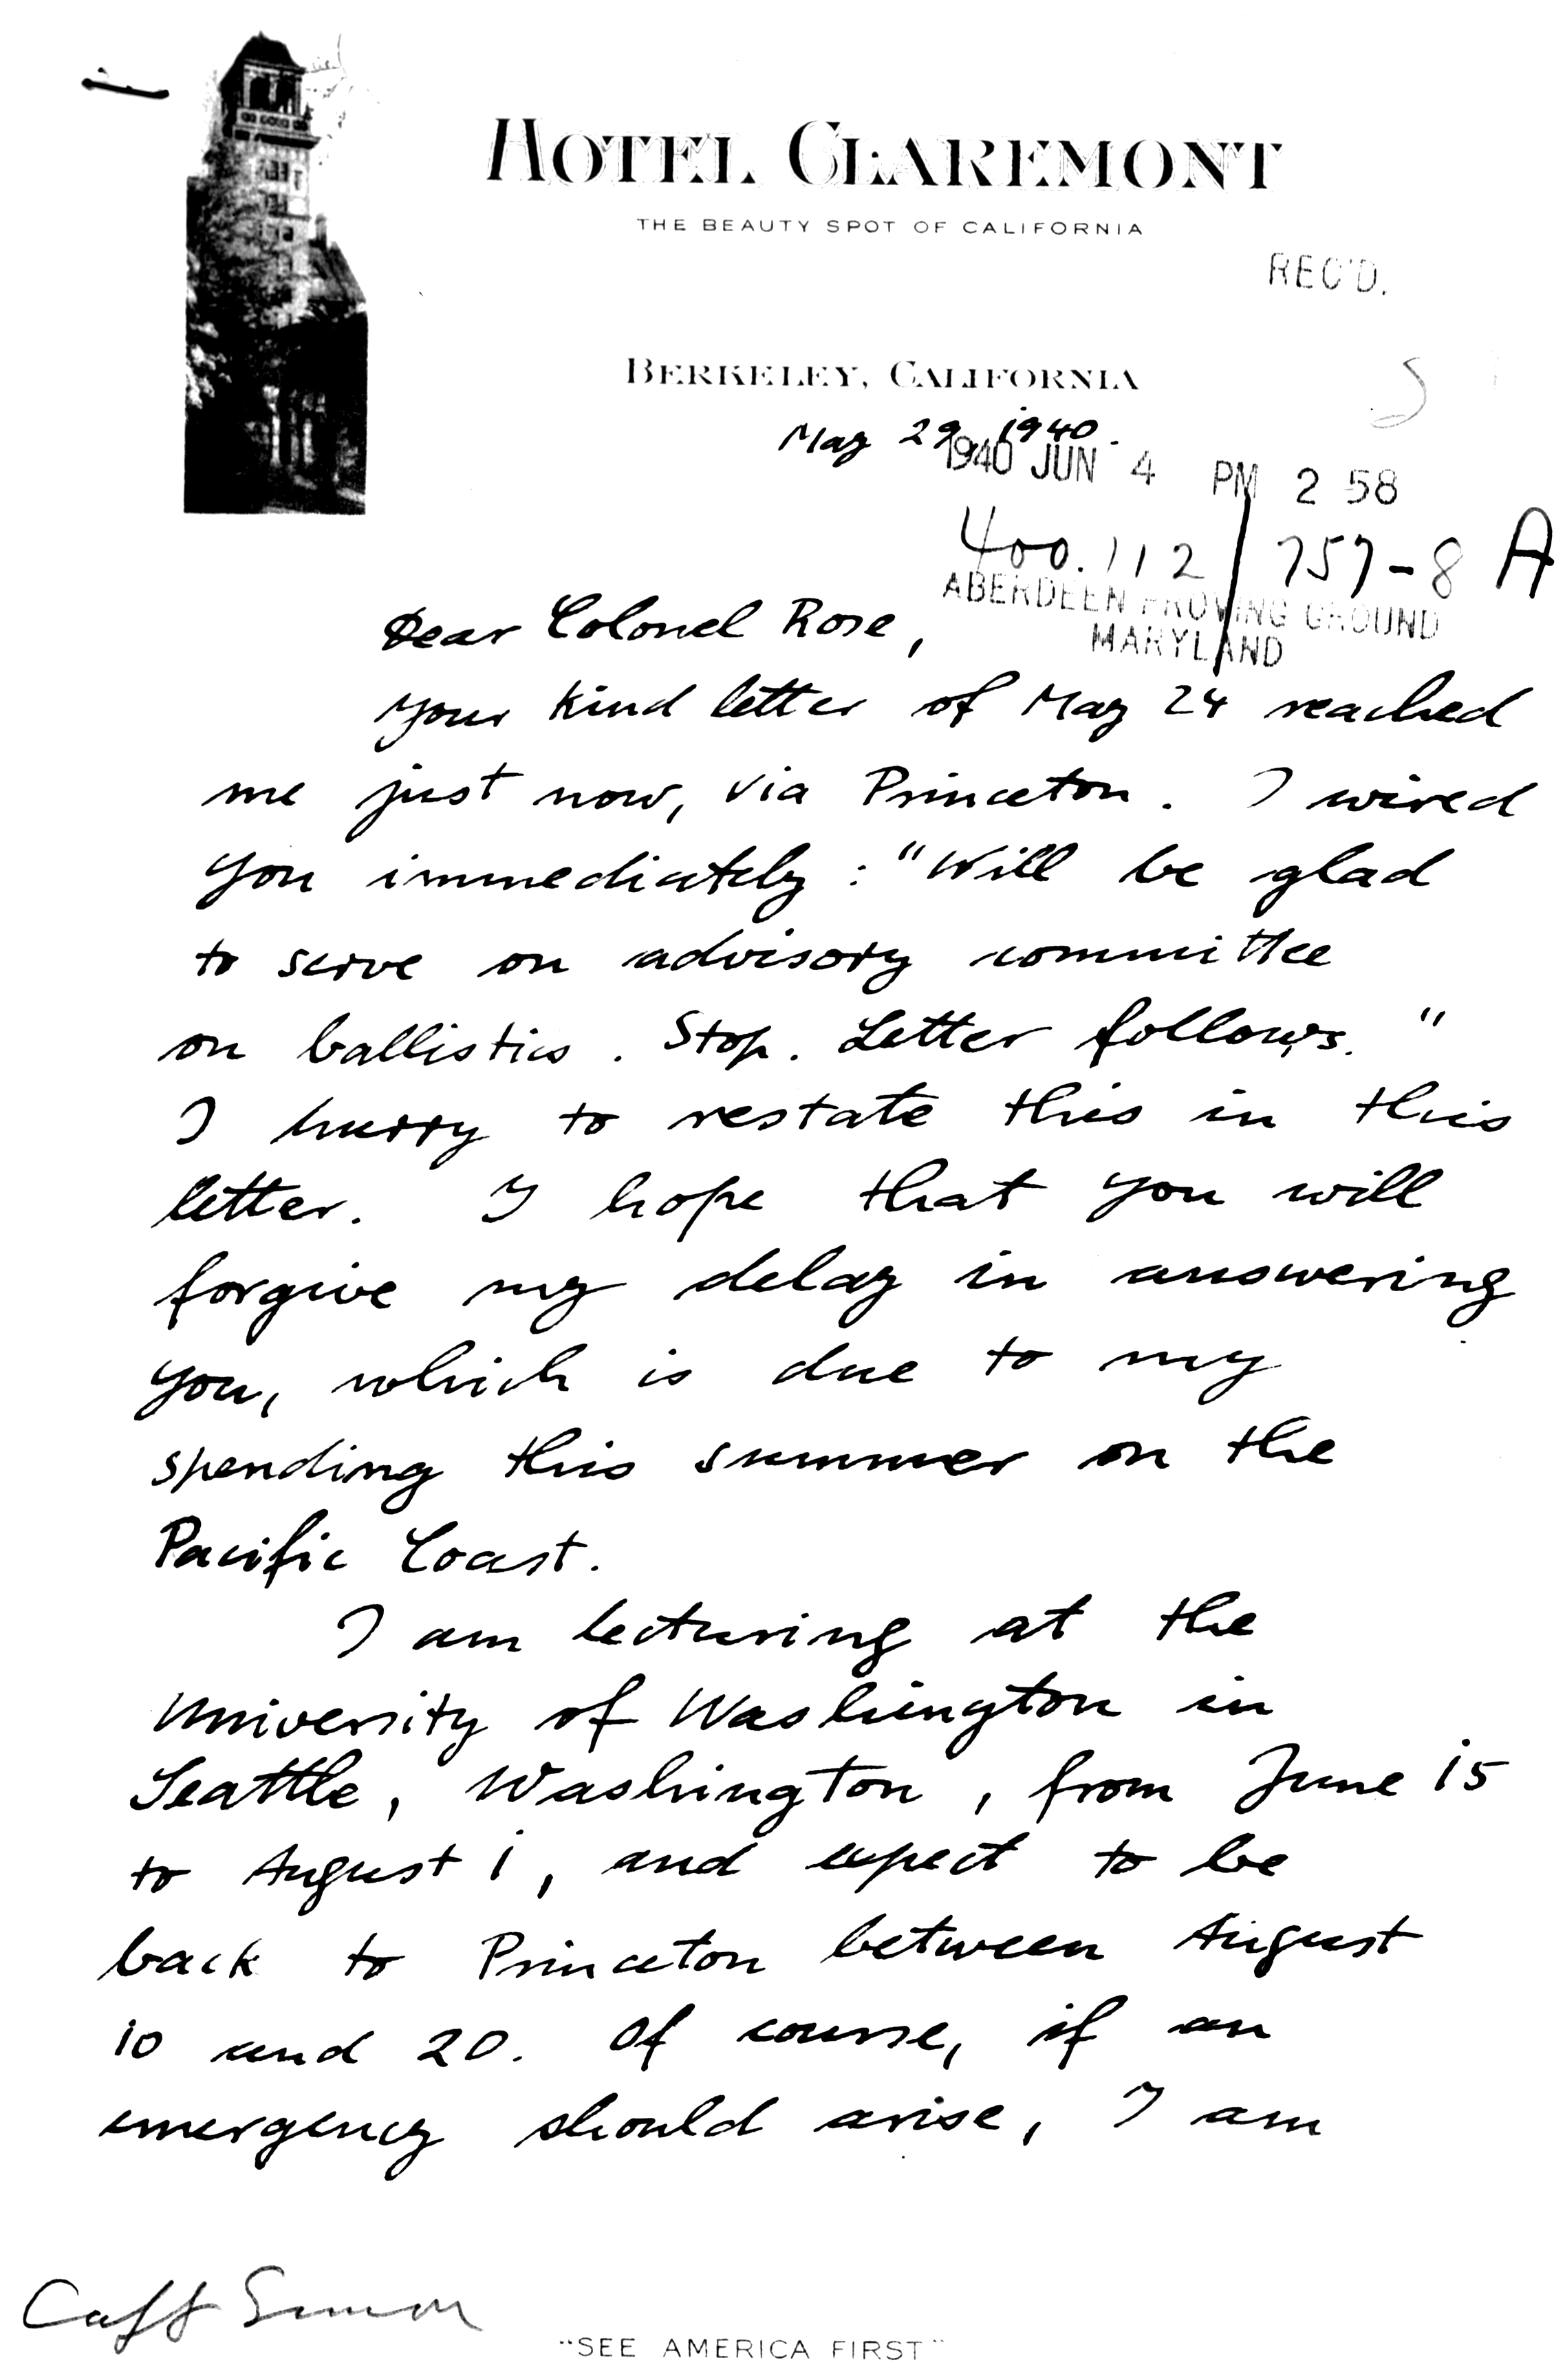 HOTEL CLAREMONT
THE BEAUTY SPOT OF CALIFORNIA
REC'D.
BERKELEY, CALIFORNIA
May 29, 1940.
1940 JUN 4 PM 2 58
400.112 / 757-8 A
ABERDEEN PROVING GROUND
MARYLAND
Dear Colonel Rose,
your kind letter of May 24 reached
me just now, via Princeton. I wired
you immediately: "Will be glad
to serve on advisory committee
on ballistics. Stop. Letter follows."
I hurry to restate this in this
letter. I hope that you will
forgive my delay in answering
you, which is due to my
spending this summer on the
Pacific Coast.
I am lecturing at the
University of Washington in
Seattle, Washington, from June 15
to August 1, and expect to be
back to Princeton between August
10 and 20. Of course, if an
emergency should arise, I am
Simon
"SEE AMERICA FIRST"